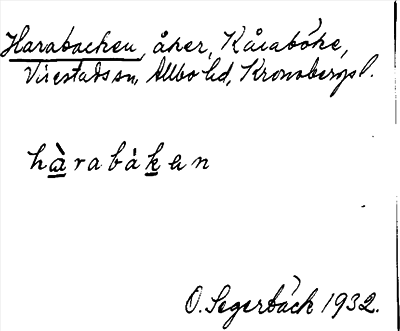 Harabacken, åker, Kåraböke,
Virestads sn, Allbo hd, Kronobergs l.
hàrabàken
O. Segerbäck 1932.